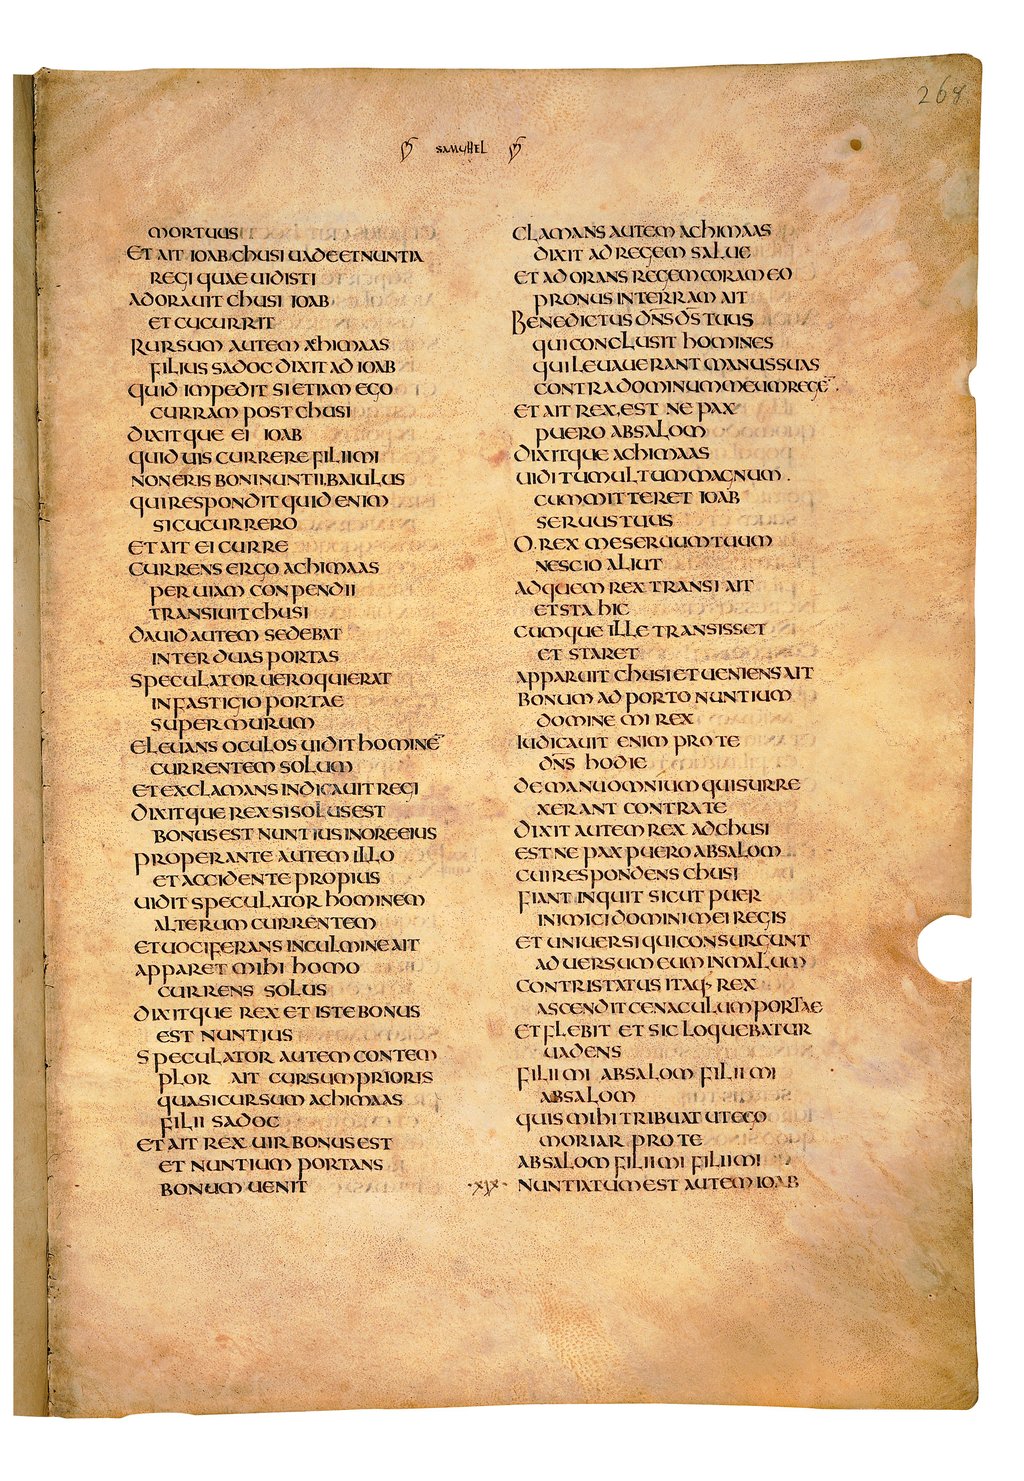 268
SAMUHEL
MORTUUS
ET AIT IOAB CHUSI UADE ET NUNTIA
REGI QUAE UIDISTI
ADORAUIT CHUSI IOAB
ET CUCURRIT
RURSUM AUTEM ACHIMAAS
FILIUS SADOC DIXIT AD IOAB
QUID IMPEDIT SI ETIAM EGO
CURRAM POST CHUSI
DIXITQUE EI IOAB
QUID UIS CURRERE FILI MI
NON ERIS BONI NUNTII BAIULUS
QUI RESPONDIT QUID ENIM
SI CUCURRERO
ET AIT EI CURRE
CURRENS ERGO ACHIMAAS
PER UIAM CONPENDII
TRANSIUIT CHUSI
DAUID AUTEM SEDEBAT
INTER DUAS PORTAS
SPECULATOR UERO QUI ERAT
IN FASTIGIO PORTAE
SUPER MURUM
ELEUANS OCULOS UIDIT HOMINE¯
CURRENTEM SOLUM
ET EXCLAMANS INDICAUIT REGI
DIXITQUE REX SI SOLUS EST
BONUS EST NUNTIUS IN ORE EIUS
PROPERANTE AUTEM ILLO
ET ACCIDENTE PROPIUS
UIDIT SPECULATOR HOMINEM
ALTERUM CURRENTEM
ET UOCIFERANS IN CULMINE AIT
APPARET MIHI HOMO
CURRENS SOLUS
DIXITQUE REX ET ISTE BONUS
EST NUNTIUS
SPECULATOR AUTEM CONTEM
PLOR AIT CURSUM PRIORIS
QUASI CURSUM ACHIMAAS
FILII SADOC
ET AIT REX UIR BONUS EST
ET NUNTIUM PORTANS
BONUM UENIT
CLAMANS AUTEM ACHIMAAS
DIXIT AD REGEM SALUE
ET ADORANS REGEM CORAM EO
PRONUS IN TERRAM AIT
BENEDICTUS DN̄S D̄S TUUS
QUI CONCLUSIT HOMINES
QUI LEUAUERANT MANUS SUAS
CONTRA DOMINUM MEUM REGE¯
ET AIT REX, EST NE PAX
PUERO ABSALOM
DIXITQUE ACHIMAAS
UIDI TUMULTUM MAGNUM .
CUM MITTERET IOAB
SERUUS TUUS
O. REX ME SERUUM TUUM
NESCIO ALIUT
AD QUEM REX TRANSI AIT
ET STA HIC
CUMQUE ILLE TRANSISSET
ET STARET
APPARUIT CHUSI ET UENIENS AIT
BONUM ADPORTO NUNTIUM
DOMINE MI REX
IUDICAUIT ENIM PRO TE
DN̄S HODIE
DE MANU OMNIUM QUI SURRE
XERANT CONTRA TE
DIXIT AUTEM REX AD CHUSI
EST NE PAX PUERO ABSALOM
CUI RESPONDENS CHUSI
FIANT INQUIT SICUT PUER
INIMICI DOMINI MEI REGIS
ET UNIUERSI QUI CONSURGUNT
ADUERSUM EUM IN MALUM
CONTRISTATUS ITAQ· REX
ASCENDIT CENACULUM PORTAE
ET FLEBIT ET SIC LOQUEBATUR
UADENS
FILI MI ABSALOM FILI MI
ABSALOM
QUIS MIHI TRIBUAT UT EGO
MORIAR PRO TE
ABSALOM FILI MI FILI MI
·XIX· NUNTIATUM EST AUTEM IOAB